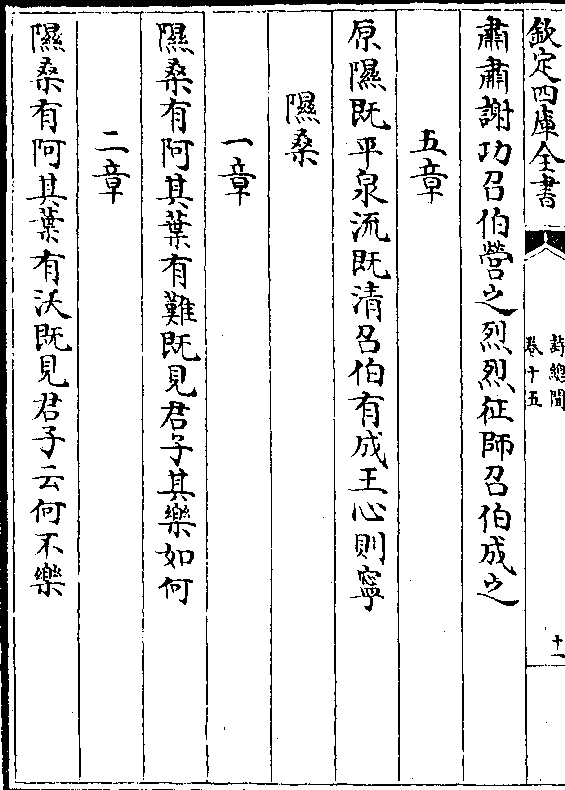 欽定四庫全書
詩總聞
卷十五
十一
肅肅謝功召伯營之烈烈征師召伯成之
五章
原隰既平泉流既清召伯有成王心則寧
隰桑
一章
隰桑有阿其葉有難既見君子其樂如何
二章
隰桑有阿其葉有沃既見君子云何不樂